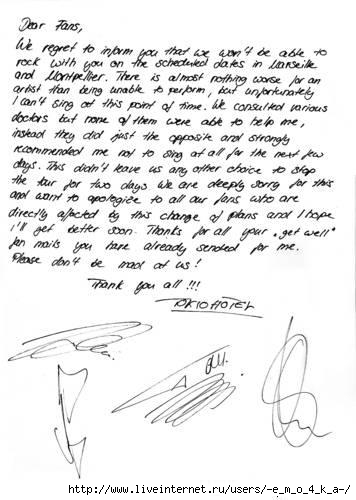 Dear Fans,
We regret to inform you that we won't be able to
rock with you on the scheduled dates in Marseille
and Montpellier. There is almost nothing worse for an
artist than being unable to perform, but unfortunately
I can't sing at this point of time. We consulted various
doctors but none of them were able to help me,
instead they did just the opposite and strongly
recommended me not to sing at all for the next few
days. This didn't leave us any other choice to stop
the tour for two days. We are deeply sorry for this
and want to apologize to all our fans who are
directly affected by this change of plans and I hope
I'll get better soon. Thanks for all your "get well"
fan mails you have already sended for me.
Please don't be mad at us!
Thank you all !!!
TOKIO HOTEL
http://www.liveinternet.ru/users/-e_m_o_4_k_a-/